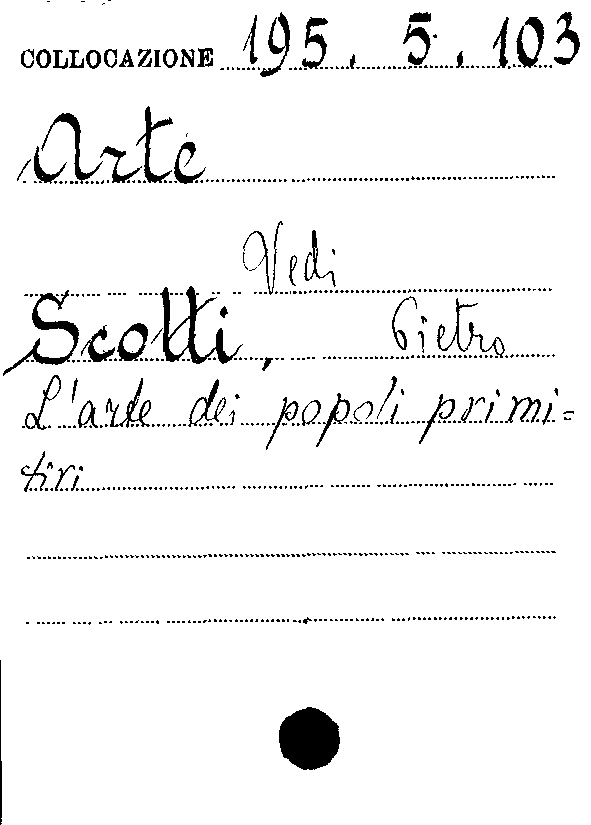 COLLOCAZIONE 195. 5. 103
Arte
Vedi
Scotti, Pietro
L'arte dei popoli primi=
tivi